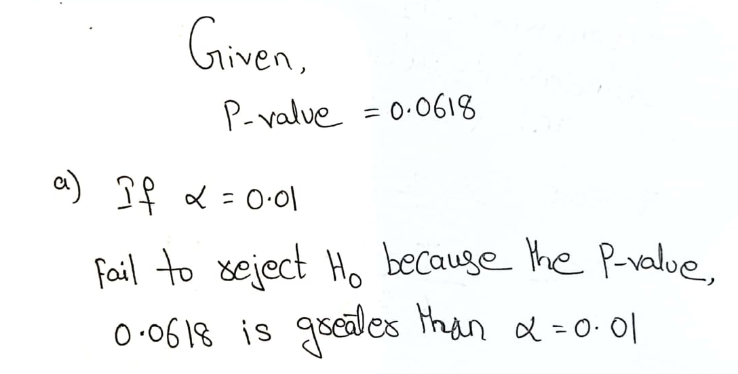 Given,
P-value = 0.0618
a) If α = 0.01
Fail to reject H₀ because the P-value,
0.0618 is greater than α = 0.01